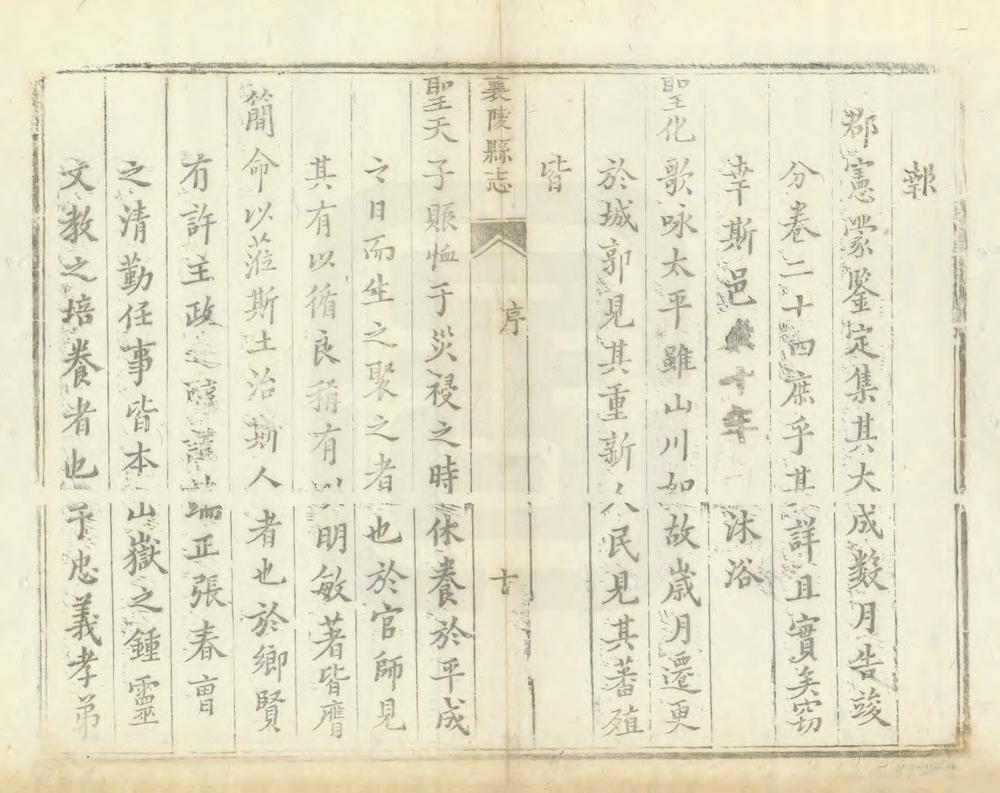 報
郡憲蒙鑒定集其大成數月告竣
分卷二十四庶乎其詳且實矣窃
幸斯邑 十年 沐浴
聖化歌咏太平雖山川如故歲月遷更
於城郭見其重新人民見其蕃殖
皆
襄陵縣志 序 十
聖天子賑恤于災祲之時休養於平成
之日而生之聚之者也於官師見
其有以循良稱有以明敏著皆膺
簡命以蒞斯土治斯人者也於鄉賢
有許主政之 謹 端正張春曹
之清勤任事皆本山嶽之鍾靈
文教之培養者也于忠義孝弟